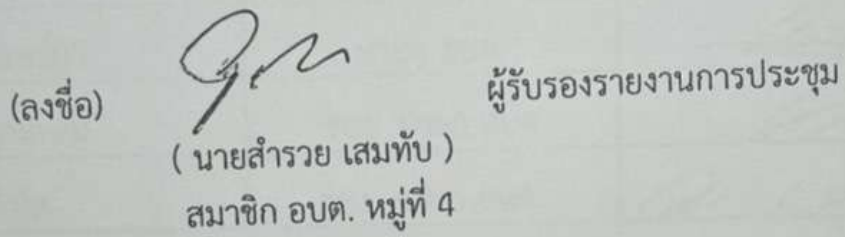 (ลงชื่อ) ผู้รับรองรายงานการประชุม
( นายสำรวย เสมทับ )
สมาชิก อบต. หมู่ที่ 4